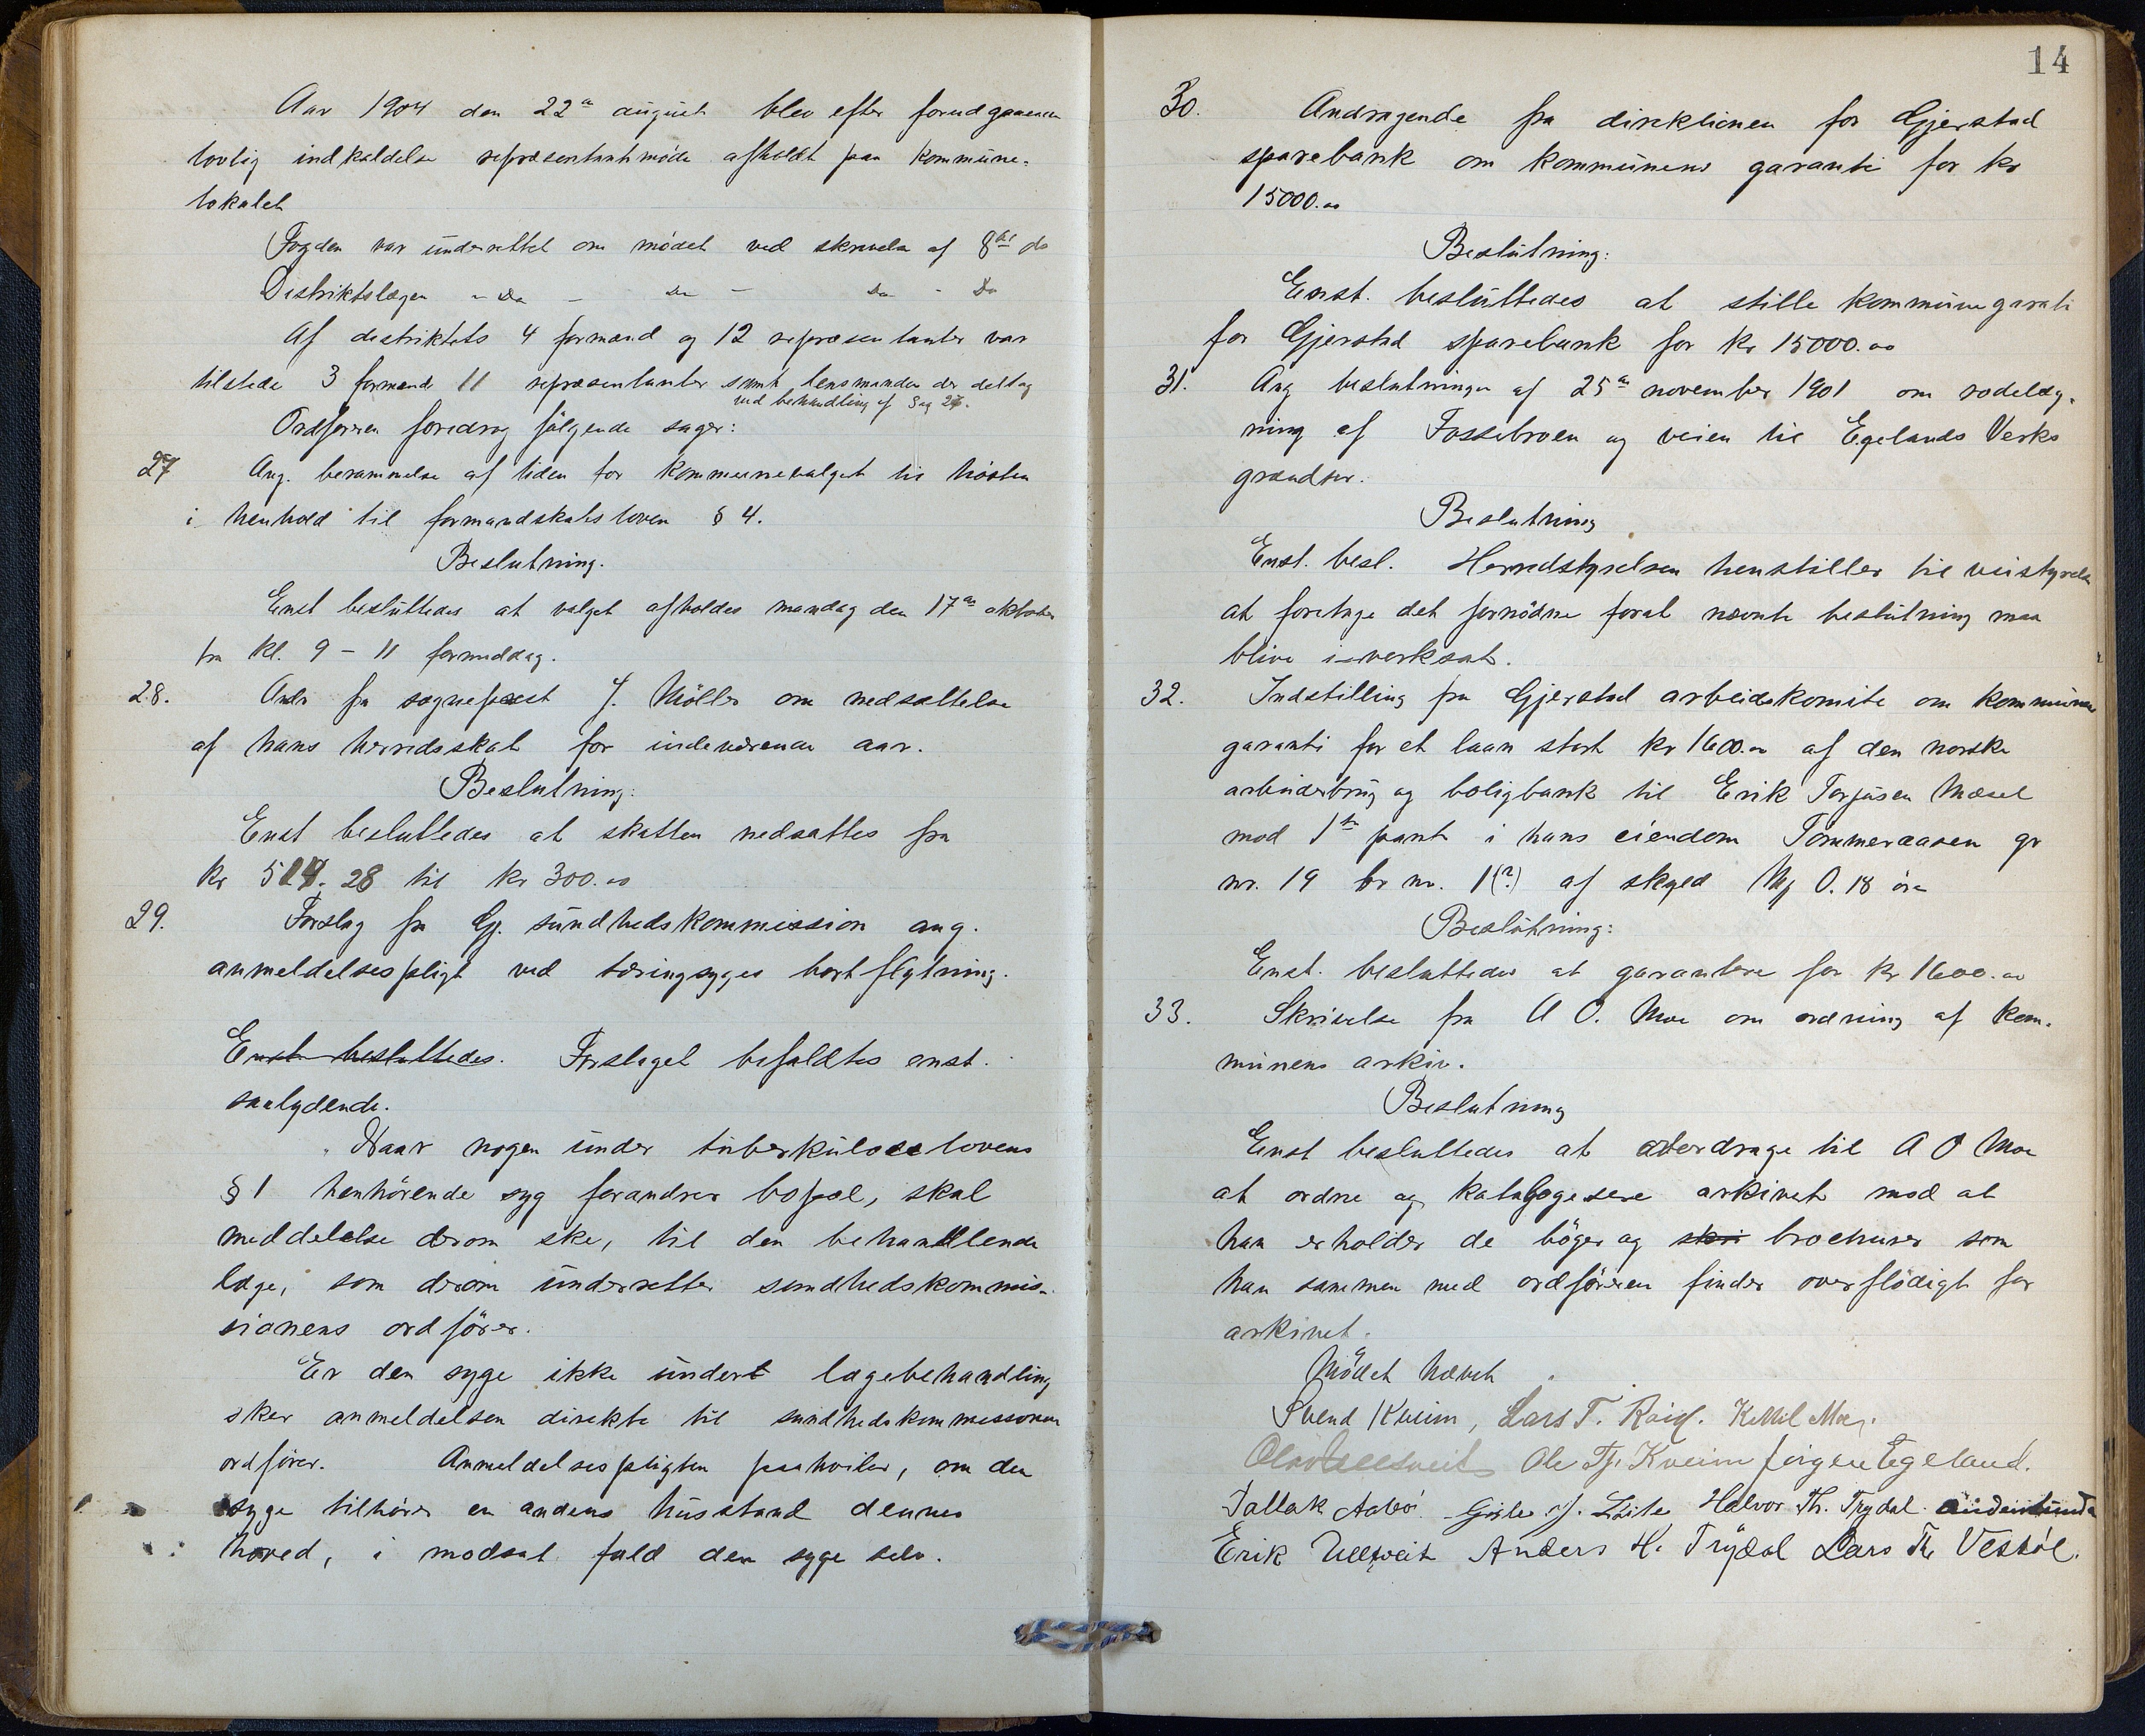 Aar 1904 den 22de august blev efter forudgaaende
lovlig indkaldelse repræsentantmøde afholdt paa kommune-
lokalet
Fogden var underrettet om mødet ved skrivelse af 8de ds
Distriktslægen - Do - Do - Do - Do
Af distriktets 4 formænd og 12 repræsentanter var
tilstede 3 formænd 11 repræsentanter samt lensmanden der deltog
ved behandling af Sag 27.
Ordføreren foredrog følgende sager:
27 Ang. berammelse af tiden for kommunevalget til høsten
i henhold til formandskabsloven § 4.
Beslutning.
Enst besluttedes at valget afholdes mandag den 17de oktober
fra kl. 9 - 11 formiddag.
28. Andr fra sogneprest J. Möller om nedsættelse
af hans herredsskat for indeværende aar.
Beslutning:
Enst besluttedes at skatten nedsattes fra
kr 514.28 til kr 300.00
29. Forslag fra Gj. sundhedskommission ang.
anmeldelsespligt ved tæringsyges bortflytning.
Enst besluttedes. Forslaget bifaldtes enst.
saalydende.
"Naar nogen under tuberkuloselovens
§ 1 henhörende syg forandrer bopæl, skal
meddelelse derom ske, til den behandlende
læge, som derom underretter sundhedskommis-
sionens ordförer.
Er den syge ikke under lægebehandling
sker anmeldelsen direkte til sundhedskommissionens
ordförer. Anmeldelsespligten paahviler, om den
syge tilhörer en andens husstand dennes
hoved, i modsat fald den syge selv.
14
30. Andragende fra direktionen for Gjerstad
sparebank om kommunens garanti for kr
15000.00
Beslutning:
Enst. besluttedes at stille kommunegarati
for Gjerstad sparebank for kr 15000.00
31. Ang beslutningen af 25de november 1901 om rodelæg-
ning af Fossebroen og veien til Egelands Verks
grændser.
Beslutning
Enst. besl. Herredstyrelsen henstiller til veistyrelsen
at foretage det fornödne forat nævnte beslutning maa
blive iverksat.
32. Indstilling fra Gjerstad arbeidskomite om kommune
garanti for et laan stort kr 1600.00 af den norske
arbeiderbrug og boligbank til Erik Torjusen Mæsel
mod 1ste pant i hans eiendom Tømmeraasen gr
nr. 19 br nr. 1(?) af skyld Mk 0.18 øre
Beslutning:
Enst. besluttedes at garantere for kr 1600.00
33. Skrivelse fra A O. Moe om ordning af kom-
munens arkiv.
Beslutning
Enst besluttedes at overdrage til A O Moe
at ordne og katalogisere arkivet mod at
han erholder de böger og skri brochurer som
han sammen med ordföreren finder overflödigt for
arkivet.
Mödet hævet
Svend Kveim, Lars T. Kettil Moe.
Ole Tj. Kveim Jörgen Egeland.
Tallak Aabö. Gisle J. Halvor Th. Trydal.
Erik Ulltveit Anders H. Trydal Lars Th. Vestöl.